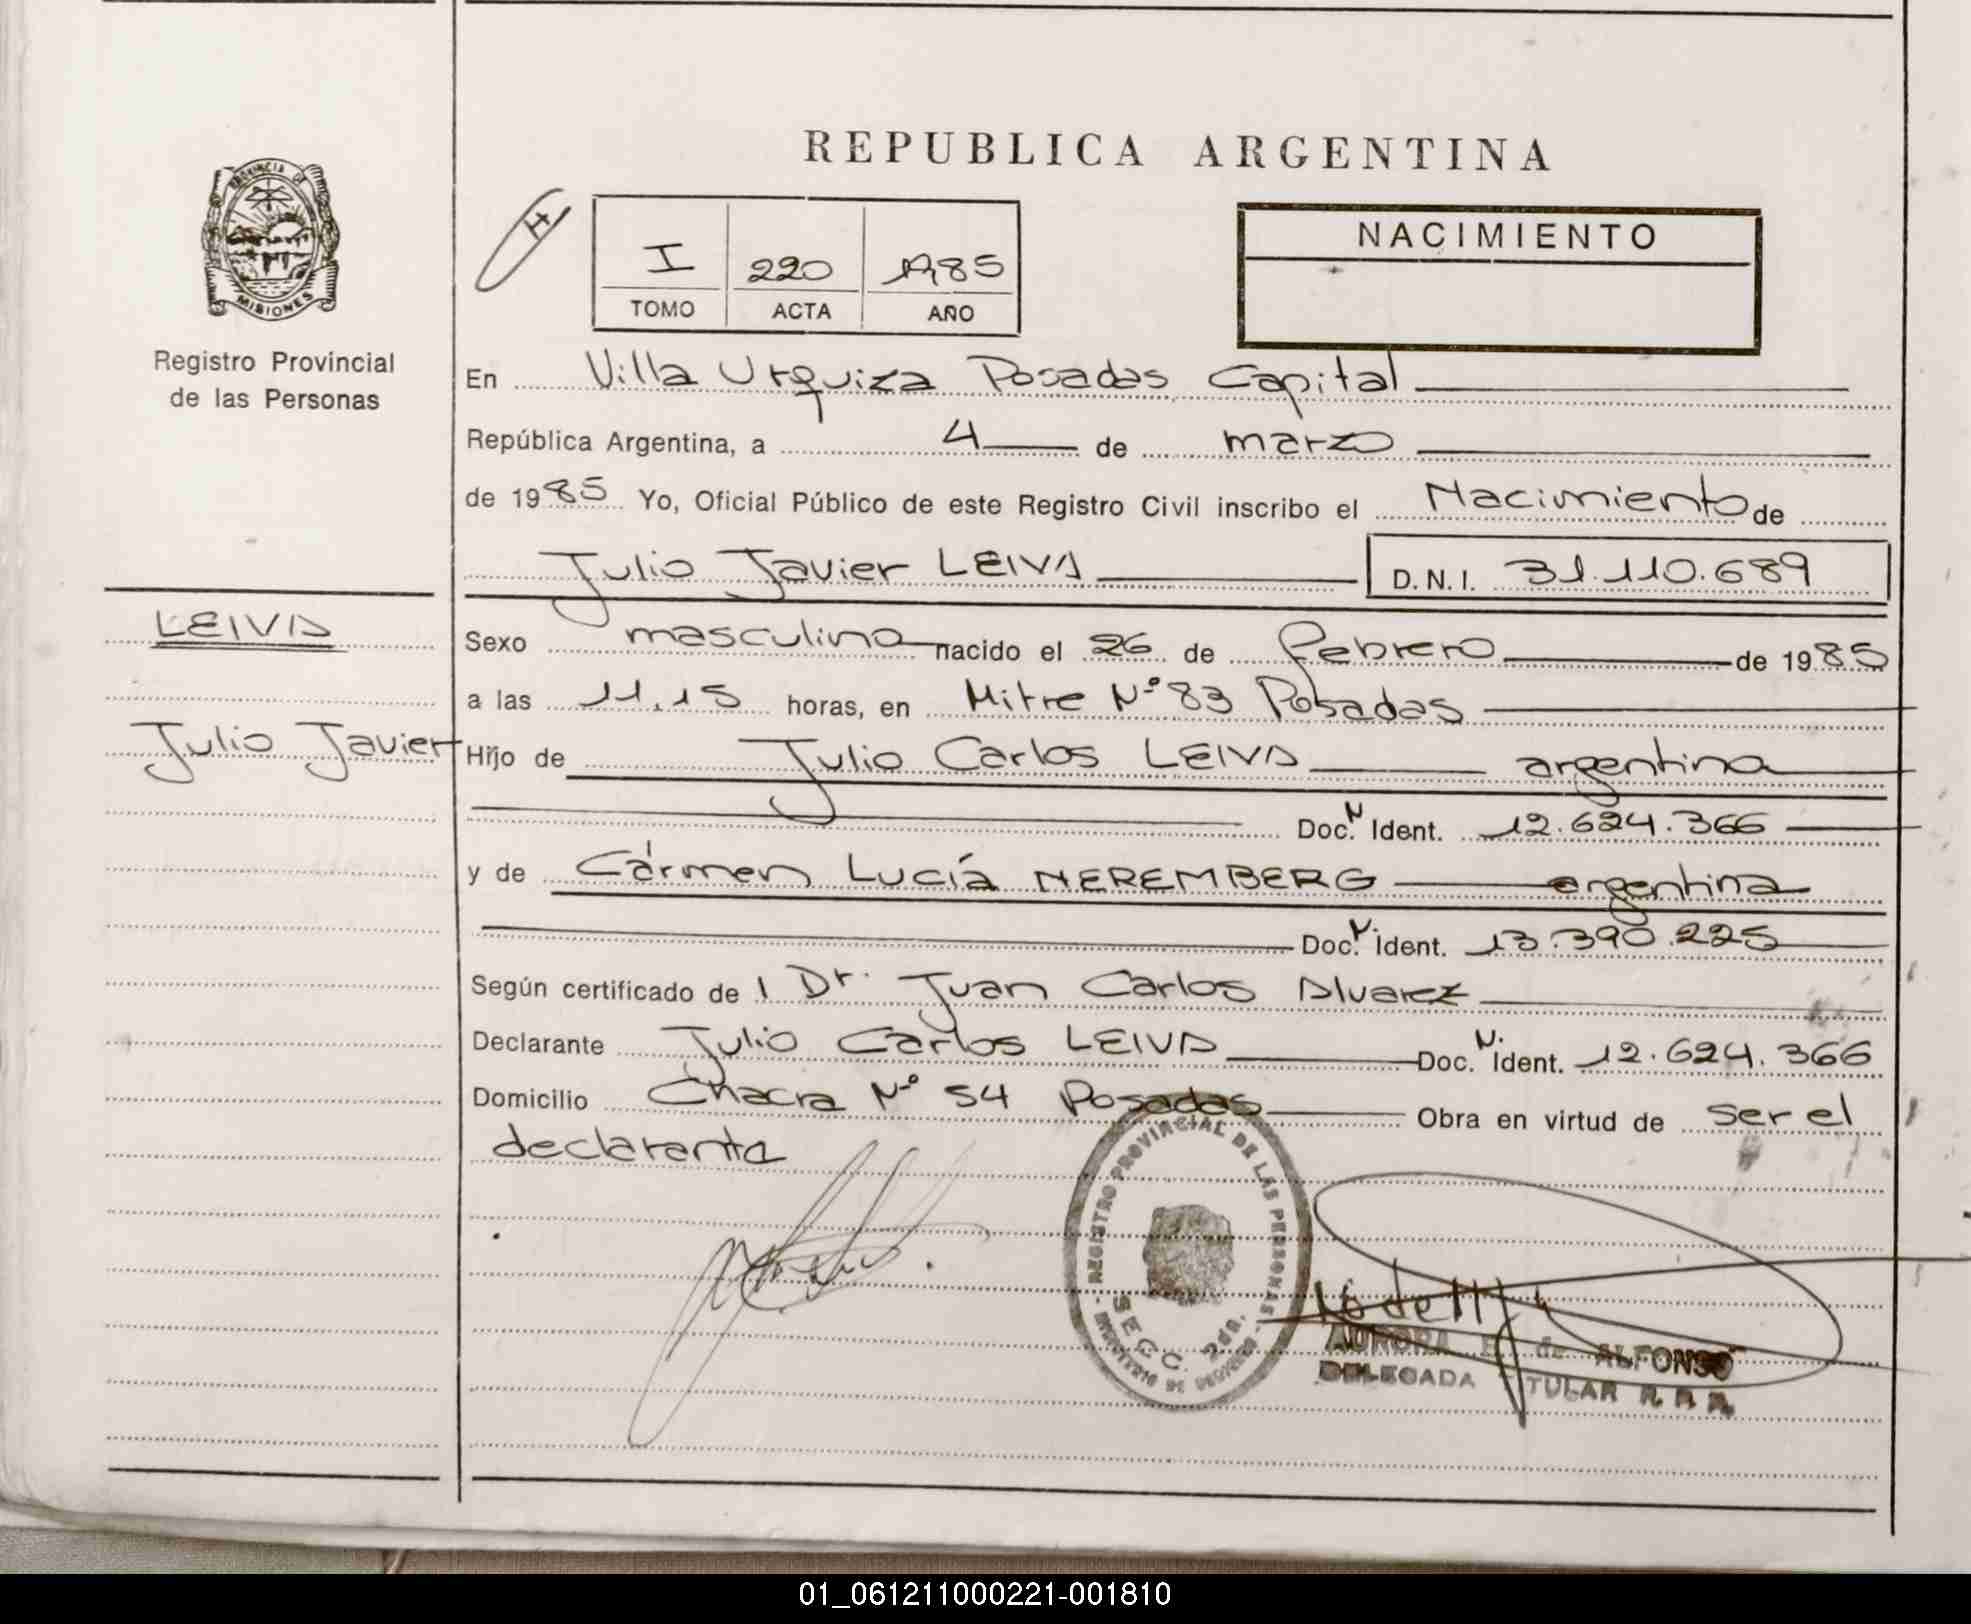 REPUBLICA ARGENTINA
PROVINCIA DE
MISIONES
Registro Provincial
de las Personas
H
I 220 1985
TOMO ACTA AÑO
NACIMIENTO
En Villa Urquiza Posadas Capital
República Argentina, a 4 de marzo
de 1985 Yo, Oficial Público de este Registro Civil inscribo el Nacimiento de
Julio Javier LEIVA D.N.I. 31.110.689
LEIVA
Julio Javier
Sexo masculino nacido el 26 de febrero de 1985
a las 11.15 horas, en Mitre Nº 83 Posadas
Hijo de Julio Carlos LEIVA argentina
Doc. N Ident. 12.624.366
y de Cármen Lucía NEREMBERG argentina
Doc. N. Ident. 13.390.225
Según certificado de l Dr. Juan Carlos Alvarez
Declarante Julio Carlos LEIVA Doc. N. Ident. 12.624.366
Domicilio Chacra Nº 54 Posadas Obra en virtud de ser el
declarante
REGISTRO PROVINCIAL DE LAS PERSONAS
SECC. 2da.
AURORA de ALFONSO
DELEGADA TITULAR R. P. P.
01_061211000221-001810